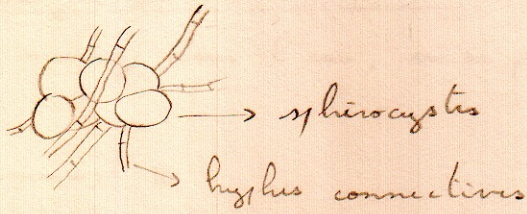 sphérocystes
hyphes connectives